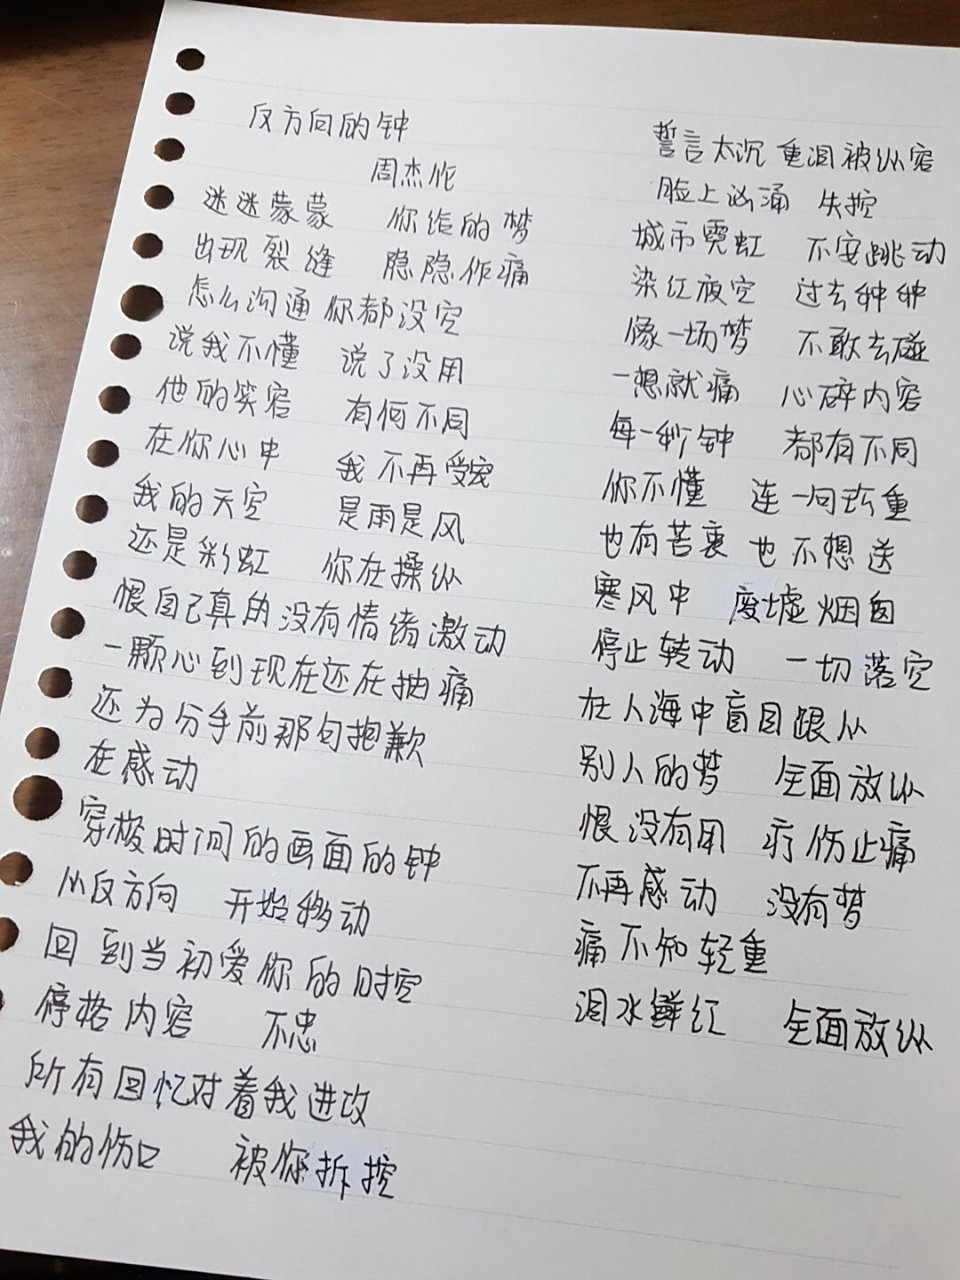 反方向的钟
周杰伦
迷迷蒙蒙 你给的梦
出现裂缝 隐隐作痛
怎么沟通你都没空
说我不懂 说了没用
他的笑容 有何不同
在你心中 我不再受宠
我的天空 是雨是风
还是彩虹 你在操纵
恨自己真的没有情绪激动
一颗心到现在还在抽痛
还为分手前那句抱歉
在感动
穿梭时间的画面的钟
从反方向 开始移动
回到当初爱你的时空
停格内容 不忠
所有回忆对着我进攻
我的伤口 被你拆控
誓言太沉重泪被纵容
脸上汹涌 失控
城市霓虹 不安跳动
染红夜空 过去种种
像一场梦 不敢去碰
一想就痛 心碎内容
每一秒钟 都有不同
你不懂 连一句珍重
也有苦衷 也不想送
寒风中 废墟烟囱
停止转动 一切落空
在人海中盲目跟从
别人的梦 全面放纵
恨没有用 疗伤止痛
不再感动 没有梦
痛不知轻重
泪水鲜红 全面放纵